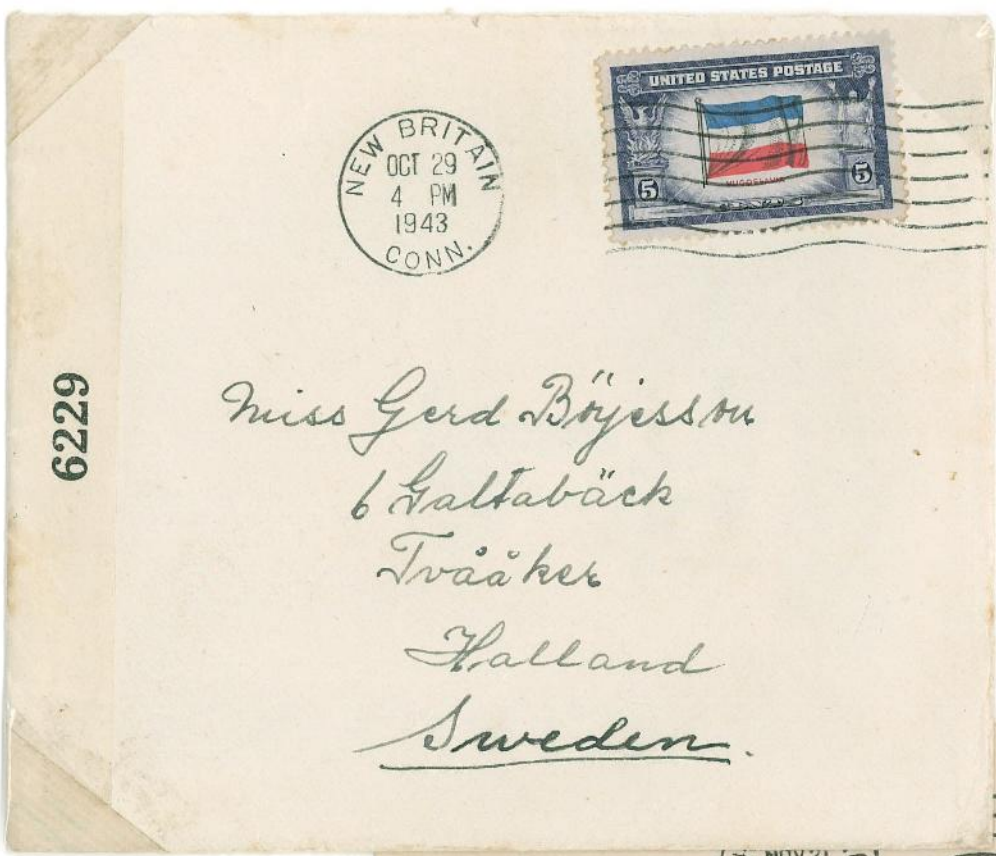 UNITED STATES POSTAGE
YUGOSLAVIA
5 5
NEW BRITAIN
OCT 29
4 PM
1943
CONN.
6229
Miss Gerd Böjesson
6 Galtabäck
Tvååker
Halland
Sweden.
NOV 21